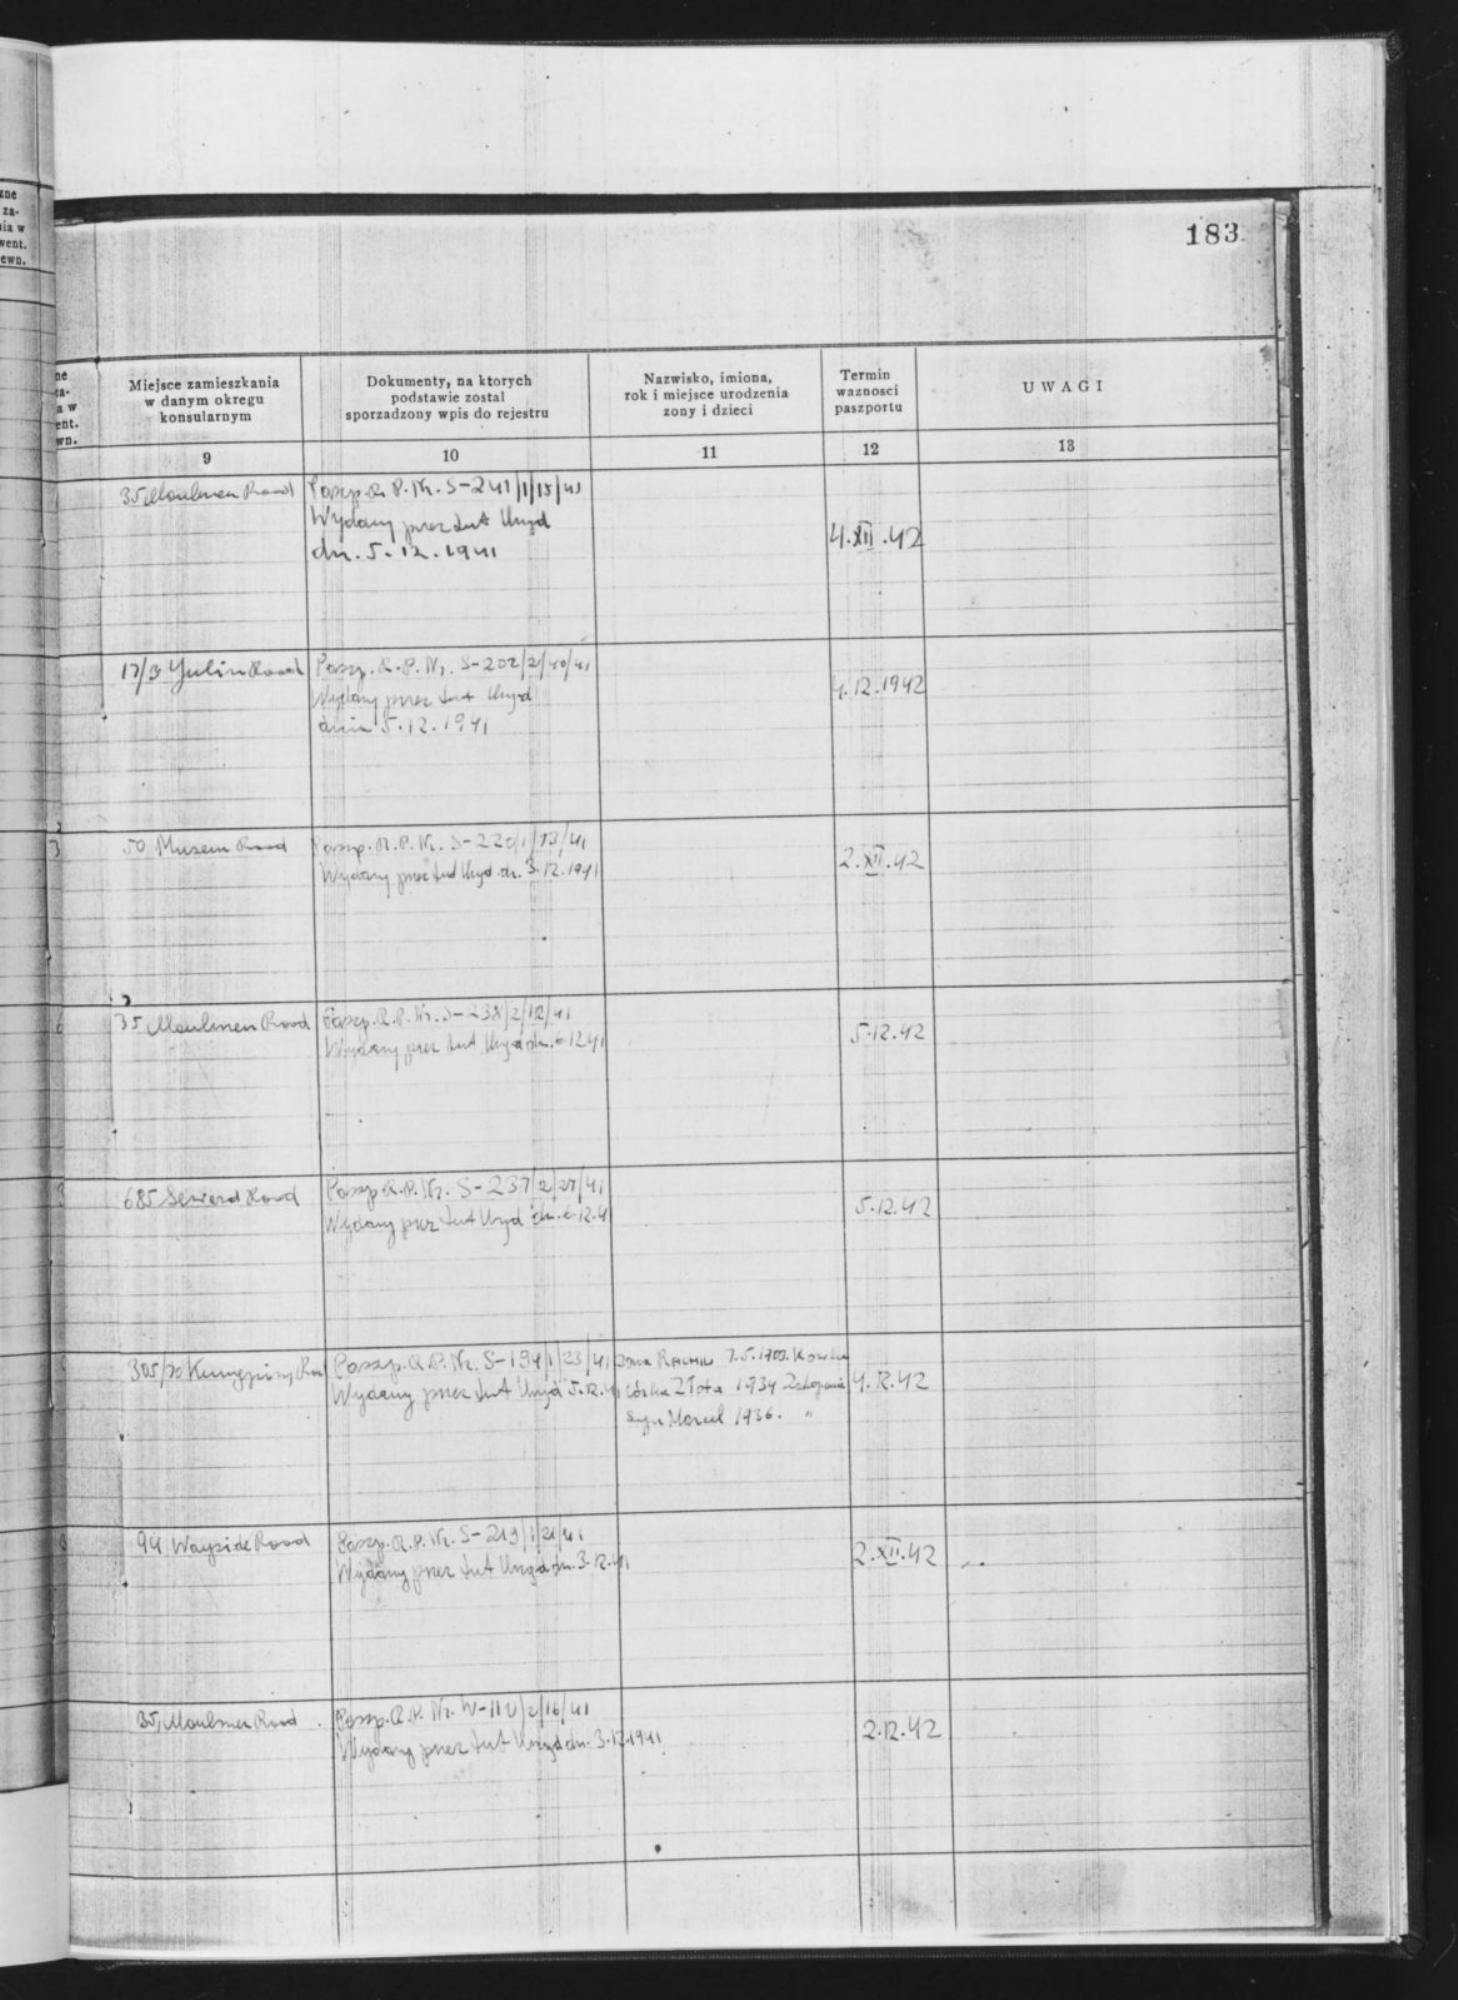 zne
za-
nia w
went.
ewn.
183
ne
za-
a w
ent.
wn.
Miejsce zamieszkania
w danym okregu
konsularnym
Dokumenty, na ktorych
podstawie zostal
sporzadzony wpis do rejestru
Nazwisko, imiona,
rok i miejsce urodzenia
zony i dzieci
Termin
waznosci
paszportu
UWAGI
9
10
11
12
13
35 Moulmen Road
Paszp. R. P. Nr. S-241/1/15/41
Wydany przez tut Urząd
dn. 5.12.1941
4.XII.42
17/3 Yulin Road
Paszp. R. P. Nr. S-202/2/40/41
Wydany przez tut Urząd
dnia 5.12.1941
4.12.1942
3
50 Museum Road
Paszp. R. P. Nr. S-220/1/13/41
Wydany przez tut Urząd dn. 3.12.1941
2.XII.42
6
35 Moulmen Road
Paszp. R. P. Nr. S-238/2/12/41
Wydany przez tut Urząd dn. 6.12.41
5.12.42
3
685 Seward Road
Paszp. R. P. Nr. S-237/2/27/41
Wydany przez tut Urząd dn. 6.12.4
5.12.42
305/20 Kungping Road
Paszp. R. P. Nr. S-194/1/23/41
Wydany przez tut Urząd 5.12.41
7.5.1909
córka Złota 1934
syn Marcel 1936. "
4.12.42
94 Wayside Road
Paszp. R. P. Nr. S-219/1/21/41
Wydany przez tut Urząd dn. 3.12.41
2.XII.42
35, Moulmen Road
Paszp. R. P. Nr. W-112/2/16/41
Wydany przez tut Urząd dn. 3.12.1941
2.12.42